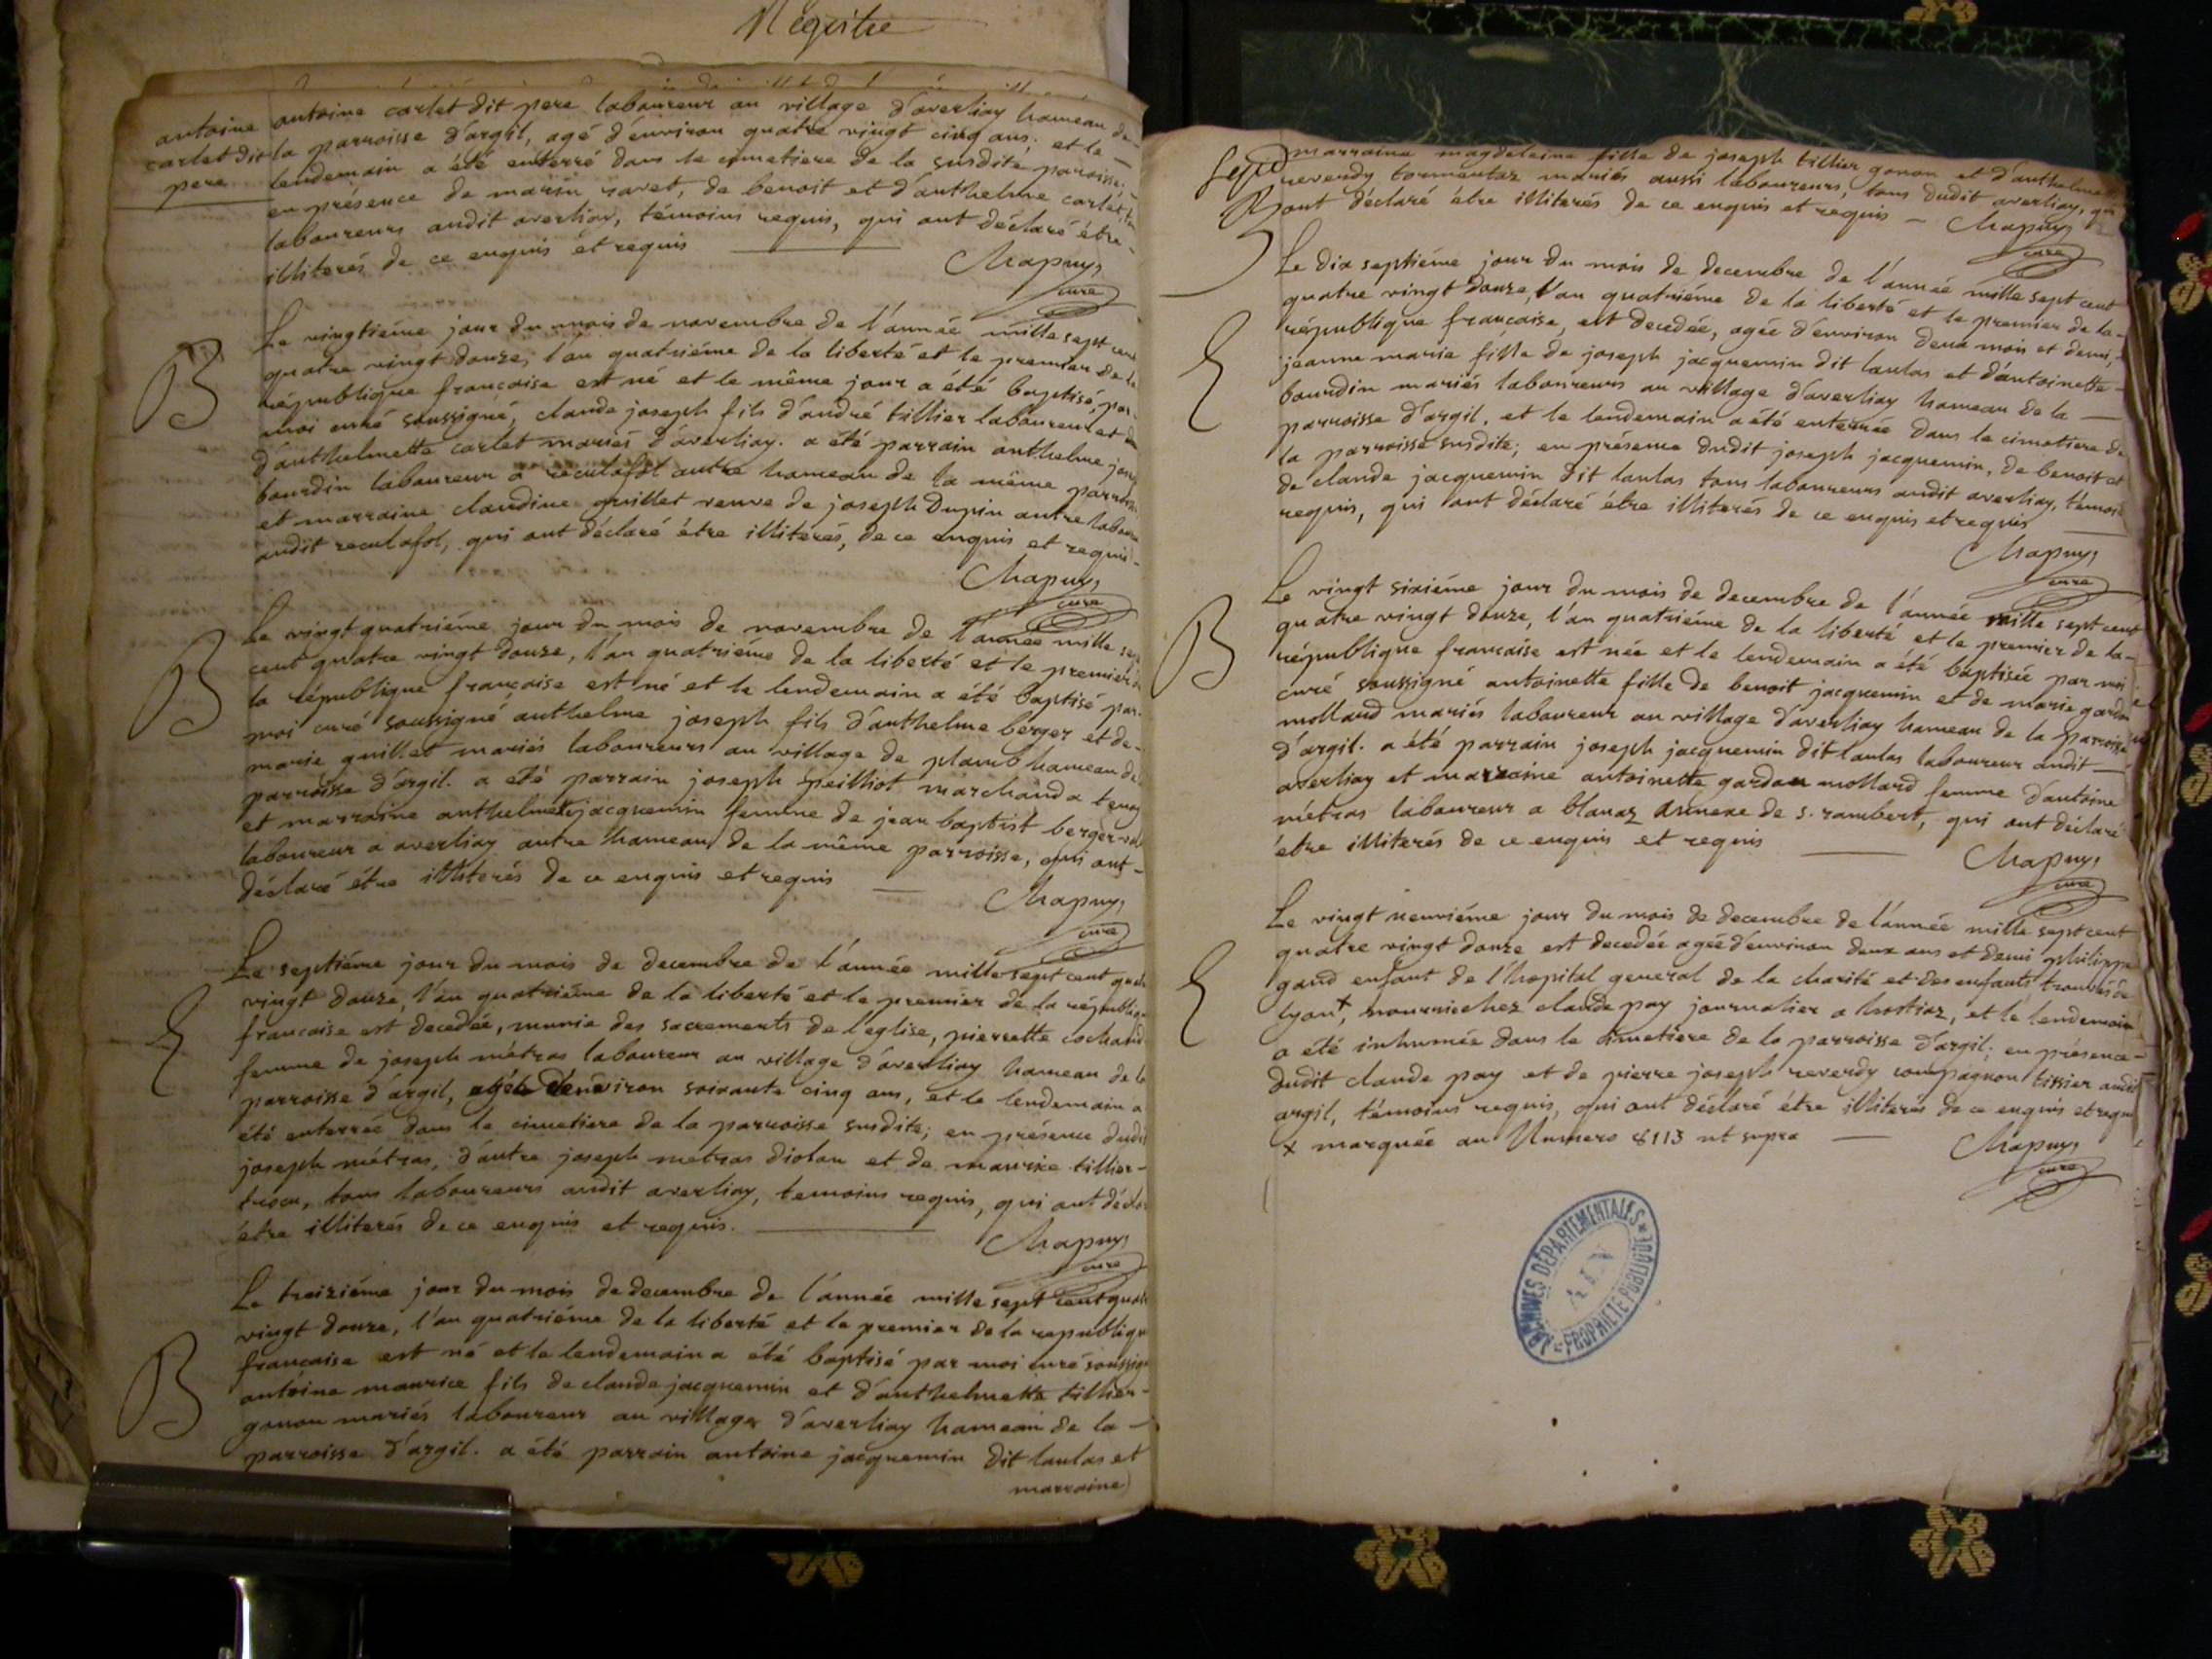 Registre
antoine
carlet dit
pere
antoine carlet dit pere laboureur au village d'averliay hameau de
la parroisse d'argil, agé d'environ quatre vingt cinq ans; et le
lendemain a été enterré dans le cimetiere de la susdite paroisse;
en présence de marin ravet, de benoit et d'anthelme carlet,
laboureurs audit averliay, témoins requis, qui ont déclaré étre
illiterés de ce enquis et requis
Chapuy,
curé
B
Le vingtiéme jour du mois de novembre de l'année mille sept cent
quatre vingt douze, l'an quatriéme de la liberté et le premier de la
république francaise est né et le même jour a été baptisé, par
moi curé soussigné, claude joseph fils d'andré tillier laboureur et
d'anthelmette carlet mariés d'averliay. a été parrain anthelme
bourdin laboureur a reculafol autre hameau de la même
et marraine claudine guillet veuve de joseph Dupin autre
audit reculafol, qui ont déclaré étre illiterés, de ce enquis et requis
Chapuy,
curé
B
Le vingt quatriéme jour du mois de novembre de l'année mille
cent quatre vingt douze, l'an quatriéme de la liberté et le premier
la république françoise est né et le lendemain a été baptisé par
moi curé soussigné anthelme joseph fils d'anthelme berger et de
marie guillet mariés laboureurs au village de plomb hameau de
parroisse d'argil. a été parrain joseph peilliot marchand a tenay
et marraine anthelmete jacquemin femme de jean baptist berger
laboureur a averliay autre hameau de la même parroisse, qui ont
déclaré étre illiterés de ce enquis et requis
Chapuy,
curé
Le septiéme jour du mois de decembre de l'année mille sept cent
vingt douze, l'an quatriéme de la liberté et le premier de la
francaise est decedée, munie des sacrements de l'eglise, pierrette
femme de joseph métras laboureur au village d'averliay hameau de la
parroisse d'argil, agée d'environ soixante cinq ans, et le lendemain a
été enterrée dans le cimetiere de la parroisse susdite; en présence
joseph métras, d'autre joseph métras diolan et de maurice tillier
tous laboureurs audit averliay, temoins requis, qui ont
étre illiterés de ce enquis et requis.
Chapuy,
curé
B
Le treiziéme jour du mois de decembre de l'année mille sept cent
vingt douze, l'an quatriéme de la liberté et le premier de la republique
francaise est né et le lendemain a été baptisé par moi curé
antoine maurice fils de claude jacquemin et d'anthelmette tillier
gonon mariés laboureur au village d'averliay hameau de la
parroisse d'argil. a été parrain antoine jacquemin dit laulas et
marraine
marraine magdeleine fille de joseph tillier gonon et d'anthelmette
reverdy tormentaz mariés aussi laboureurs, tous dudit averliay, qui
ont déclaré étre illiterés de ce enquis et requis
Chapuy,
curé
Le dix septiéme jour du mois de decembre de l'année mille sept cent
quatre vingt douze, l'an quatriéme de la liberté et le premier de la
république francaise, est decedée, agée d'environ deux mois et demi,
jeanne marie fille de joseph jacquemin dit laulas et d'antoinette
bourdin mariés laboureurs au village d'averliay hameau de la
parroisse d'argil. et le lendemain a été enterrée dans le cimetiere de
la parroisse susdite; en présence dudit joseph jacquemin, de benoit et
de claude jacquemin dit laulas tous laboureurs audit averliay,
requis, qui ont déclaré étre illiterés de ce enquis et requis
Chapuy,
curé
B
Le vingt sixiéme jour du mois de decembre de l'année mille sept cent
quatre vingt douze, l'an quatriéme de la liberté et le premier de la
république francaise est née et le lendemain a été baptisée par moi
curé soussigné antoinette fille de benoit jacquemin et de marie gardon
mollard mariés laboureur au village d'averliay hameau de la parroisse
d'argil. a été parrain joseph jacquemin dit laulas laboureur audit
averliay et marraine antoinette gardon mollard femme d'antoine
métras laboureur a blanaz annexe de s. rambert, qui ont déclaré
étre illiterés de ce enquis et requis
Chapuy,
curé
Le vingt neuviéme jour du mois de decembre de l'année mille sept cent
quatre vingt douze est decedée agée d'environ deux ans et demi philippe
gand enfant de l'hopital general de la charité et des enfants trouvés de
lyon x, nourrie chez claude pay journalier a hostiaz, et le lendemain
a été inhumée dans le cimetiere de la parroisse d'argil; en présence
dudit claude pay et de pierre joseph reverdy compagnon tissier audit
argil, témoins requis, qui ont déclaré étre illiterés de ce enquis et requis
x marquée au Numero 8113 ut supra
Chapuy,
curé
ARCHIVES DÉPARTEMENTALES
AIN
PROPRIÉTÉ PUBLIQUE